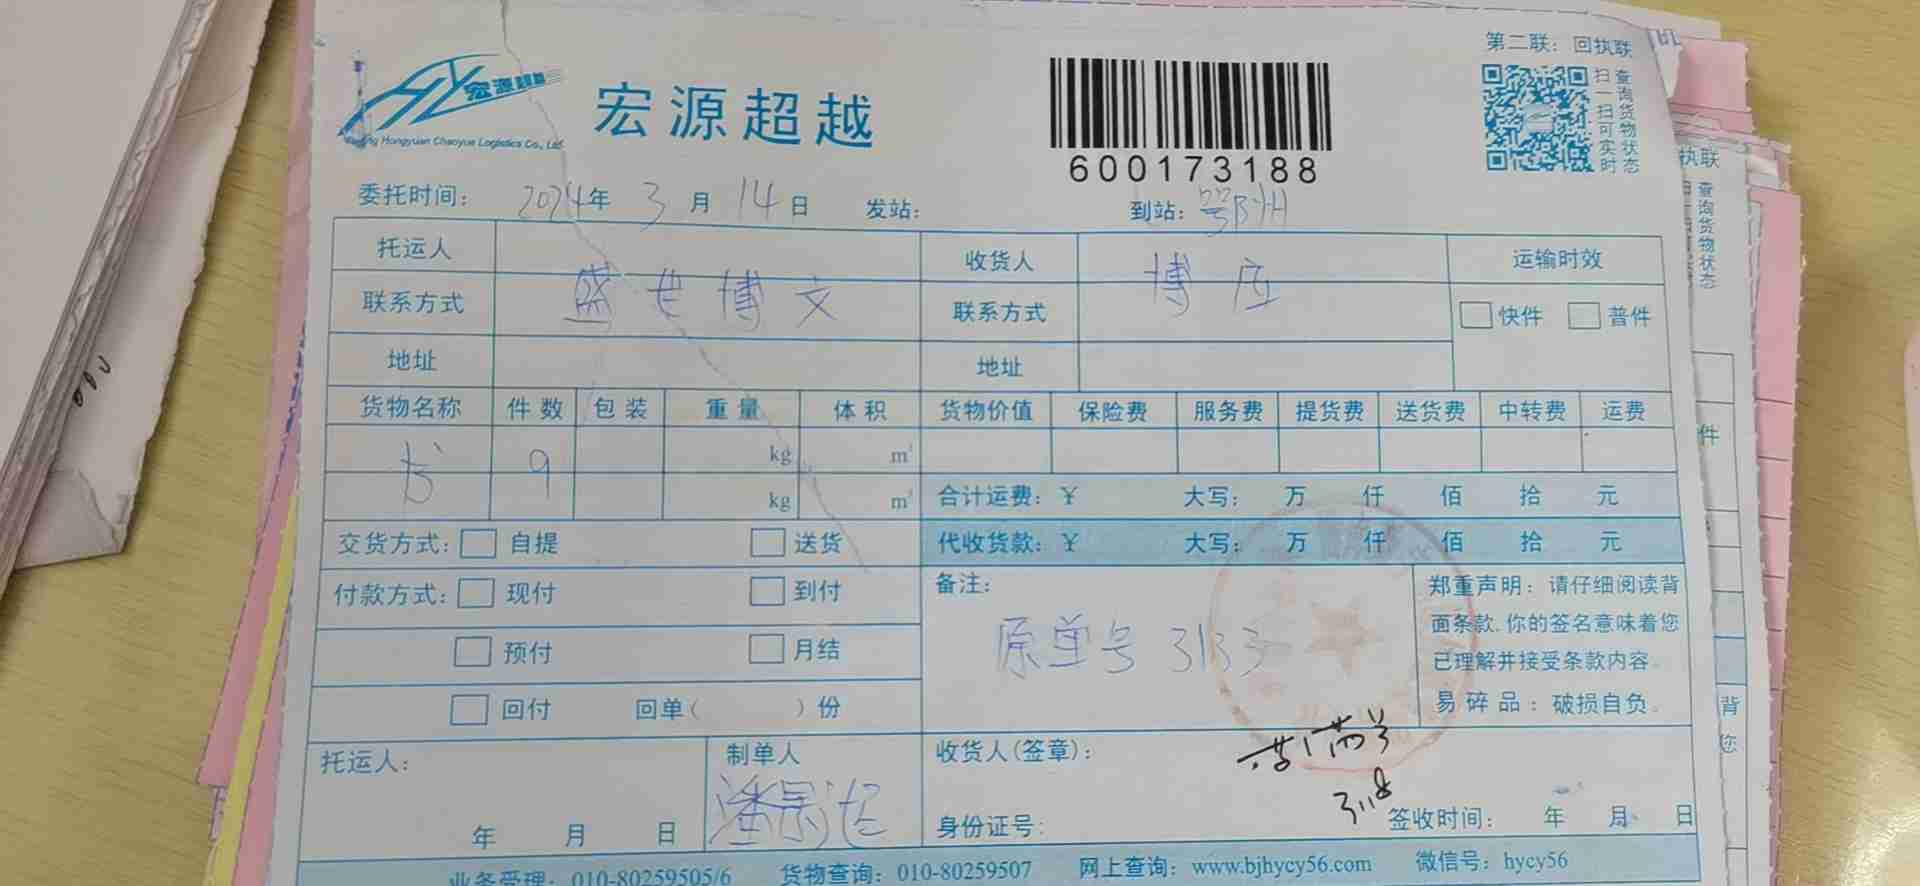 第二联：回执联
宏源超越
Beijing Hongyuan Chaoyue Logistics Co., Ltd
宏源超越
600173188
扫一扫可实时
查询货物状态
委托时间：2024年 3月 14日 发站： 到站：鄂州
托运人 收货人 运输时效
盛世博文 博库
联系方式 联系方式 快件 普件
地址 地址
货物名称 件数 包装 重量 体积 货物价值 保险费 服务费 提货费 送货费 中转费 运费
书 9 kg m³
kg m³ 合计运费：¥ 大写： 万 仟 佰 拾 元
交货方式： 自提 送货 代收货款：¥ 大写： 万 仟 佰 拾 元
付款方式： 现付 到付
预付 月结
回付 回单( )份
备注：
原单号 3133
郑重声明：请仔细阅读背
面条款.你的签名意味着您
已理解并接受条款内容.
易碎品：破损自负.
托运人： 制单人 收货人(签章)：
3.18
年 月 日 身份证号： 签收时间： 年 月 日
业务受理：010-80259505/6 货物查询：010-80259507 网上查询：www.bjhycy56.com 微信号：hycy56
执联
查询货物状态
件
背
您